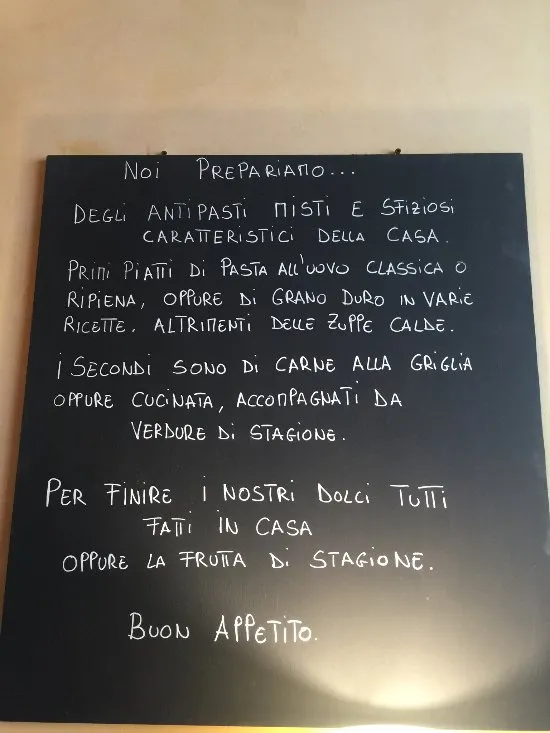 NOI PREPARIAMO...
DEGLI ANTIPASTI MISTI E SFIZIOSI
CARATTERISTICI DELLA CASA.
PRIMI PIATTI DI PASTA ALL'UOVO CLASSICA O
RIPIENA, OPPURE DI GRANO DURO IN VARIE
RICETTE. ALTRIMENTI DELLE ZUPPE CALDE.
I SECONDI SONO DI CARNE ALLA GRIGLIA
OPPURE CUCINATA, ACCOMPAGNATI DA
VERDURE DI STAGIONE.
PER FINIRE I NOSTRI DOLCI TUTTI
FATTI IN CASA
OPPURE LA FRUTTA DI STAGIONE.
BUON APPETITO.